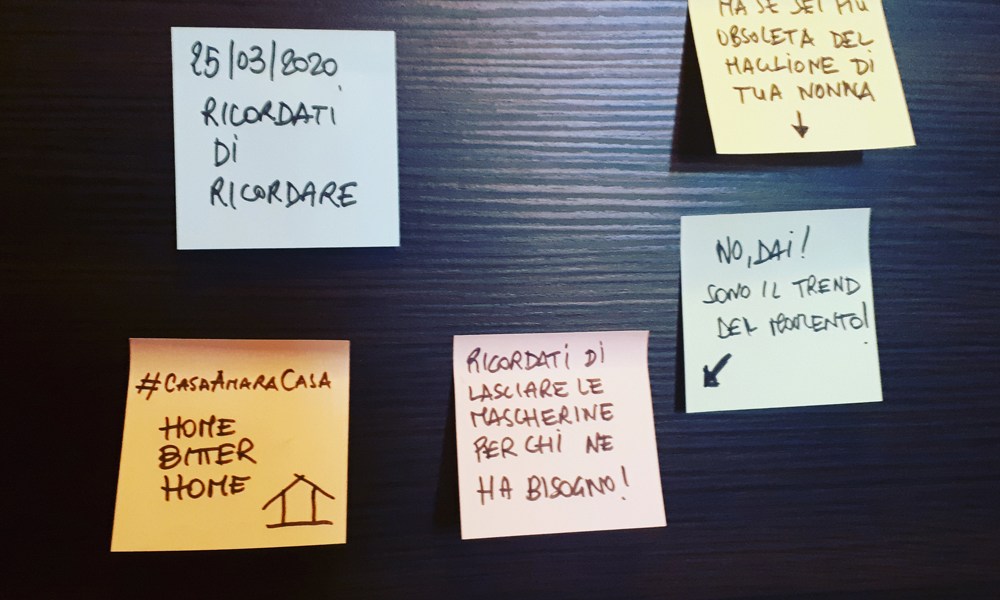 25/03/2020
RICORDATI
DI
RICORDARE
MA SE SEI PIÙ
OBSOLETA DEL
MAGLIONE DI
TUA NONNA
NO, DAI!
SONO IL TREND
DEL MOMENTO!
#CASAAMARACASA
HOME
BITTER
HOME
RICORDATI DI
LASCIARE LE
MASCHERINE
PER CHI NE
HA BISOGNO!